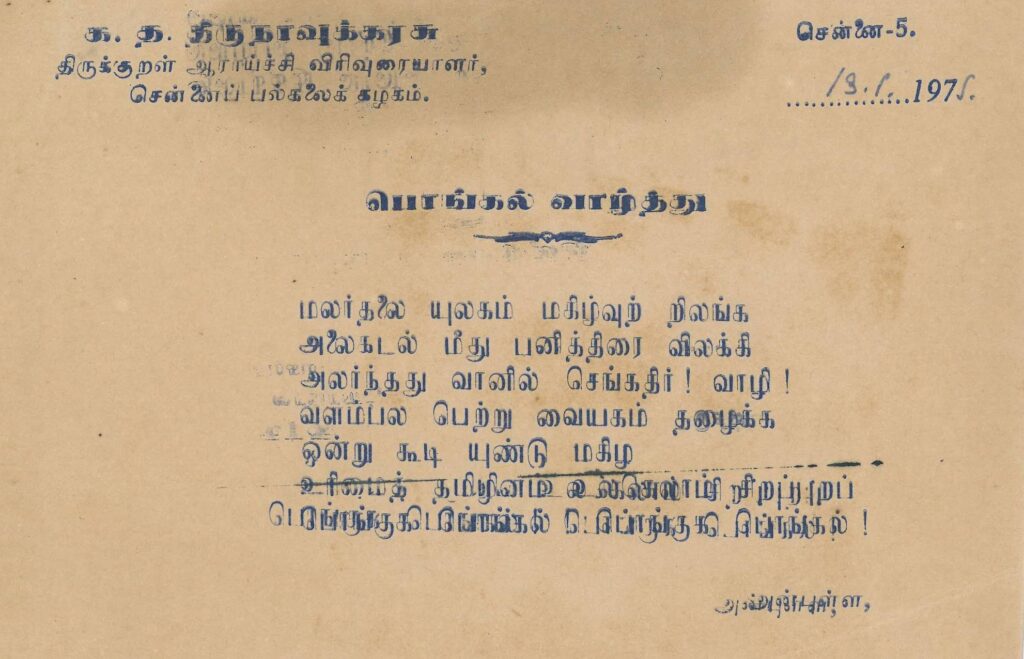 க. த. திருநாவுக்கரசு
திருக்குறள் ஆராய்ச்சி விரிவுரையாளர்,
சென்னைப் பல்கலைக் கழகம்.
சென்னை-5.
1975.
பொங்கல் வாழ்த்து
மலர்தலை யுலகம் மகிழ்வுற் றிலங்க
அலைகடல் மீது பனித்திரை விலக்கி
அலர்ந்தது வானில் செங்கதிர் ! வாழி !
வளம்பல பெற்று வையகம் தழைக்க
ஒன்று கூடி யுண்டு மகிழ
உரிமைத் தமிழினம் உலகெலாம் சிறப்புறப்
பொங்குக பொங்கல் பொங்குக பொங்கல் !
அன்புள்ள,